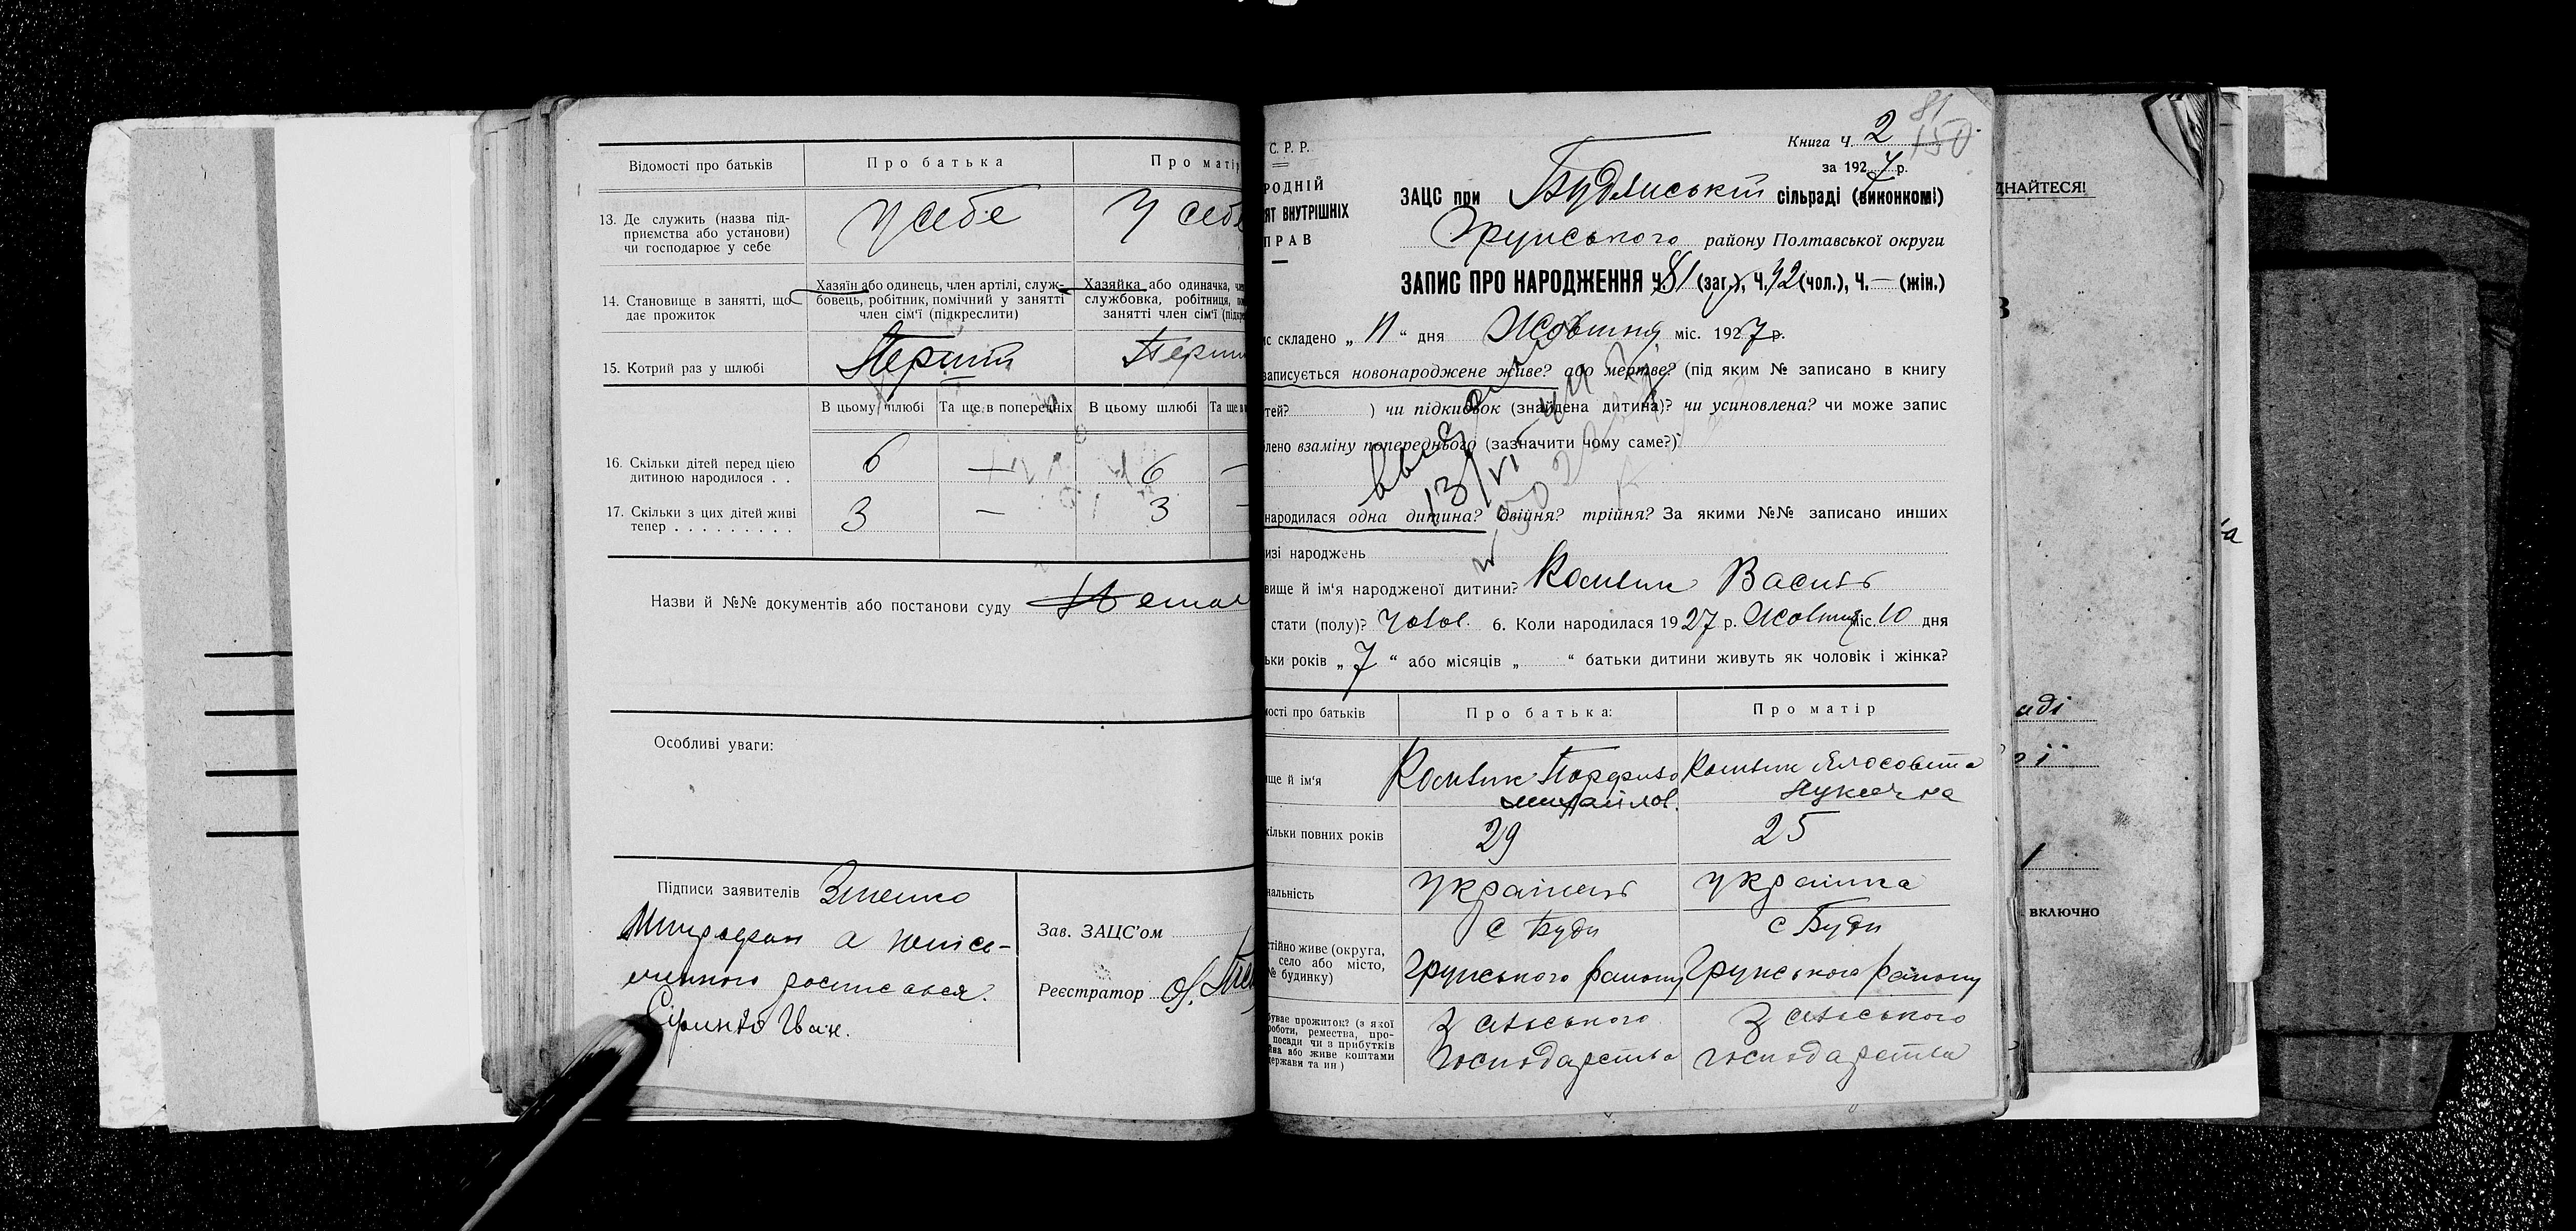 Відомості про батьків
Про батька
Про матір
13. Де служить (назва під-
приємства або установи)
чи господарює у себе
У себе
У себе
14. Становище в занятті, що
дає прожиток
Хазяїн або одинець, член артілі, служ-
бовець, робітник, помічний у занятті
член сім'ї (підкреслити)
Хазяйка або одиначка,
службовка, робітниця,
занятті член сім'ї
15. Котрий раз у шлюбі
Перший
В цьому шлюбі
Та ще в попередніх
В цьому шлюбі
Та ще в
16. Скільки дітей перед цією
дитиною народилося . .
6 — 6 —
17. Скільки з цих дітей живі
тепер . . . . . . . . . .
3 — 3 —
Назви й №№ документів або постанови суду
Особливі уваги:
Підписи заявителів Зіненко
Митрофан а
росписався.
Іван.
Зав. ЗАЦС'ом
Реєстратор
81
150
Книга Ч. 2
за 1927 р.
С. Р. Р.
РОДНІЙ
ЯТ ВНУТРІШНІХ
ПРАВ
ЗАЦС при Будянській сільраді (виконкомі)
Грунського району Полтавської округи
ЗАПИС ПРО НАРОДЖЕННЯ Ч. 81 (заг.), Ч. 42 (чол.), Ч. — (жін.)
ис складено „ 11 “ дня Жовтня міс. 1927 р.
записується новонароджене живе? або мертве? (під яким № записано в книгу
тей? ) чи підкидок (знайдена дитина)? чи усиновлена? чи може запис
лено взаміну попереднього (зазначити чому саме?)
13/VI
народилася одна дитина? двійня? трійня? За якими №№ записано инших
изі народжень
вище й ім'я народженої дитини? Комлик Василь
стати (полу)? Чолов. 6. Коли народилася 1927 р. Жовтня міс. 10 дня
ьки років „ 7 “ або місяців „ “ батьки дитини живуть як чоловік і жінка?
мості про батьків
Про батька:
Про матір
ище й ім'я
Комлик
Михайлов.
Комлик
кільки повних років
29
25
нальність
Українець
Українка
стійно живе (округа,
село або місто,
№ будинку)
с Буди
Грунського району
с Буди
Грунського району
буває прожиток? (з якої
роботи, ремества, про-
посади чи з прибутків
йва або живе коштами
держави та ин)
З сільського
господарства
З сільського
господарства
ДНАЙТЕСЯ!
В
аді
ої
1
включно